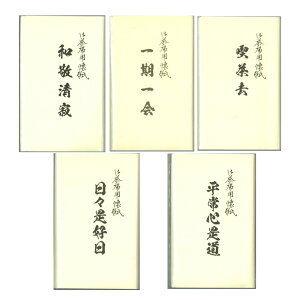 御茶席用懐紙
喫茶去
御茶席用懐紙
一期一会
御茶席用懐紙
和敬清寂
御茶席用懐紙
平常心是道
御茶席用懐紙
日々是好日